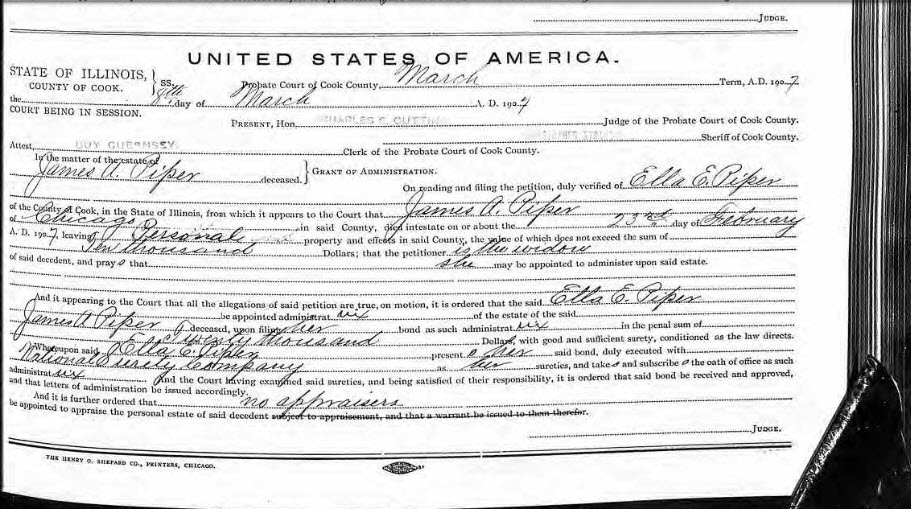 JUDGE.
UNITED STATES OF AMERICA.
STATE OF ILLINOIS,
COUNTY OF COOK. } ss. Probate Court of Cook County, March Term, A. D. 1907
the 8th day of March A. D. 1907
COURT BEING IN SESSION.
PRESENT, Hon. CHARLES S. CUTTING Judge of the Probate Court of Cook County.
Sheriff of Cook County.
Attest, GUY GUERNSEY Clerk of the Probate Court of Cook County.
In the matter of the estate of
James A. Piper deceased. } GRANT OF ADMINISTRATION.
On reading and filing the petition, duly verified of Ella E. Piper
of the County of Cook, in the State of Illinois, from which it appears to the Court that James A. Piper
of Chicago in said County, died intestate on or about the 23rd day of February
A. D. 1907, leaving Personal property and effects in said County, the value of which does not exceed the sum of
Ten thousand Dollars; that the petitioner is the widow
of said decedent, and prays that she may be appointed to administer upon said estate.
And it appearing to the Court that all the allegations of said petition are true, on motion, it is ordered that the said Ella E. Piper
be appointed administratrix of the estate of the said
James A Piper deceased, upon filing her bond as such administratrix in the penal sum of
Twenty thousand Dollars, with good and sufficient surety, conditioned as the law directs.
Whereupon said Ella E. Piper presents her said bond, duly executed with
National Surety Company as her sureties, and takes and subscribes the oath of office as such
administratrix And the Court having examined said sureties, and being satisfied of their responsibility, it is ordered that said bond be received and approved,
and that letters of administration be issued accordingly.
And it is further ordered that no appraisers
be appointed to appraise the personal estate of said decedent subject to appraisement, and that a warrant be issued to them therefor.
JUDGE.
THE HENRY O. SHEPARD CO., PRINTERS, CHICAGO.